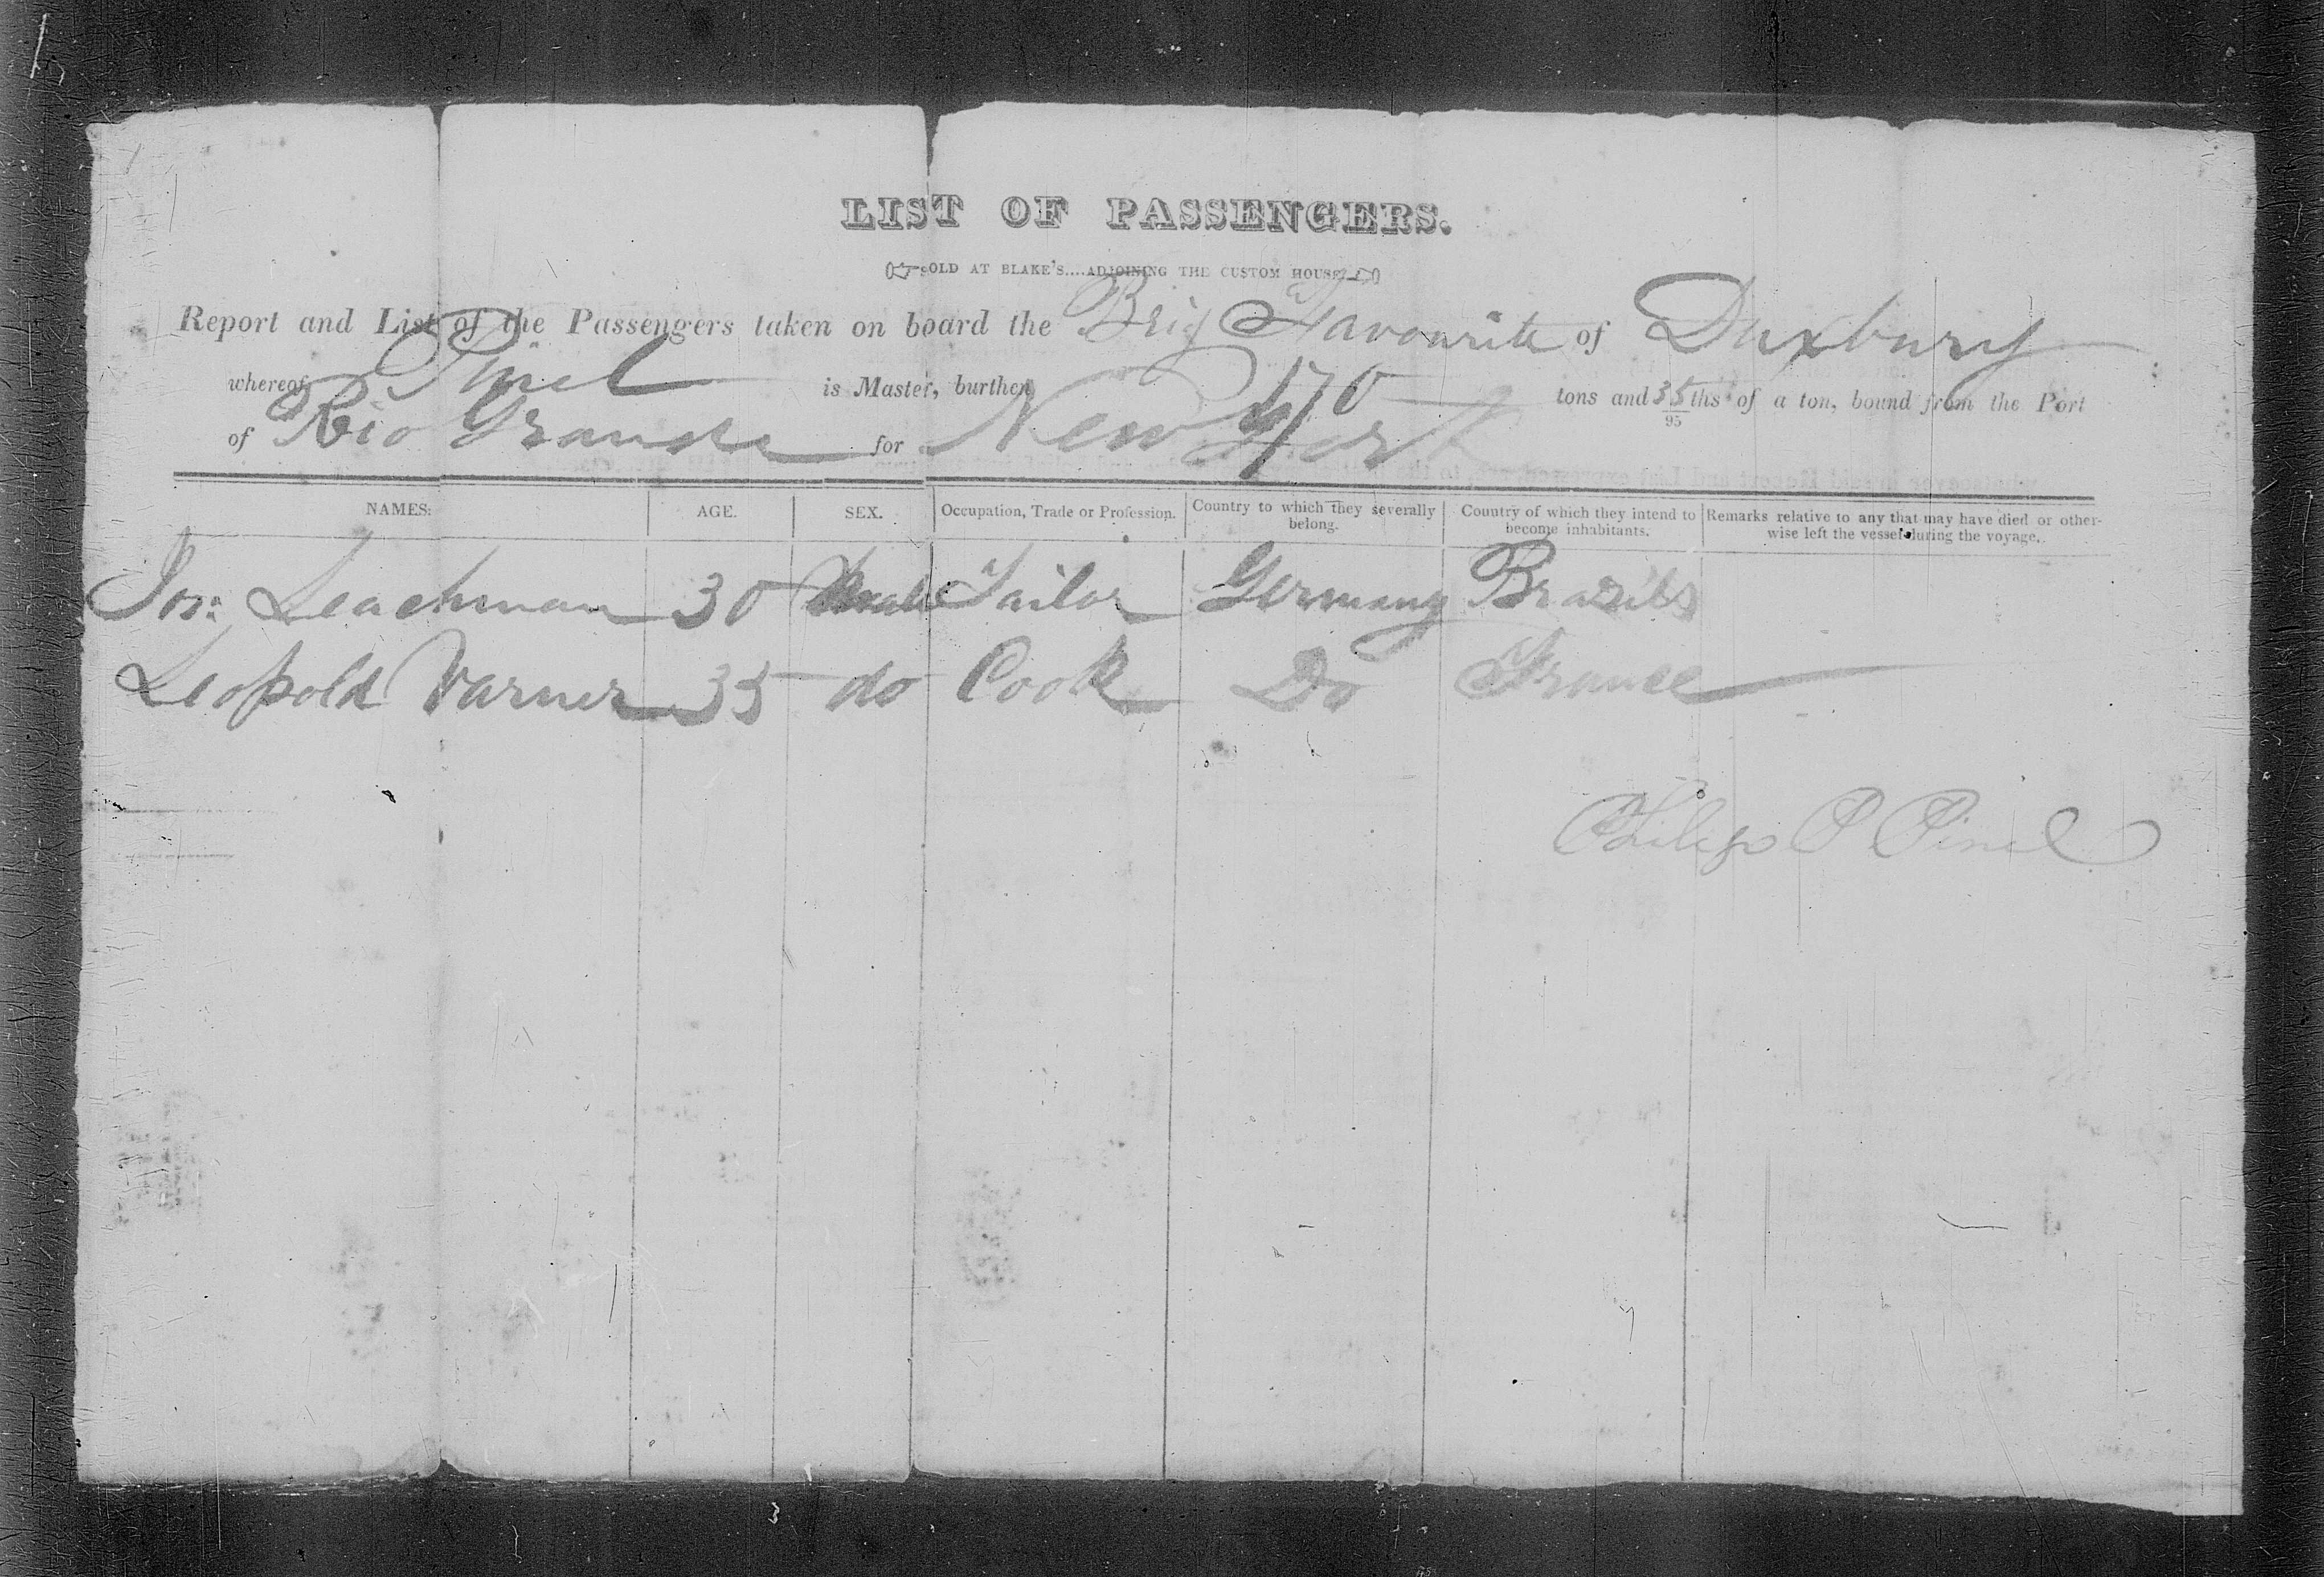 LIST OF PASSENGERS.
SOLD AT BLAKE'S....ADJOINING THE CUSTOM HOUSE
Report and List of the Passengers taken on board the Brig Favourite of Duxbury
whereof Pinel is Master, burthen 170 tons and 35 ths of a ton, bound from the Port
95
of Rio Grande for New York
NAMES. AGE. SEX. Occupation, Trade or Profession. Country to which they severally belong. Country of which they intend to become inhabitants. Remarks relative to any that may have died or otherwise left the vessel during the voyage.
Jos: Leachman 30 Male Tailor Germany Brazils
Leopold Varner 35 do Cook Do France
Philip P Pinel